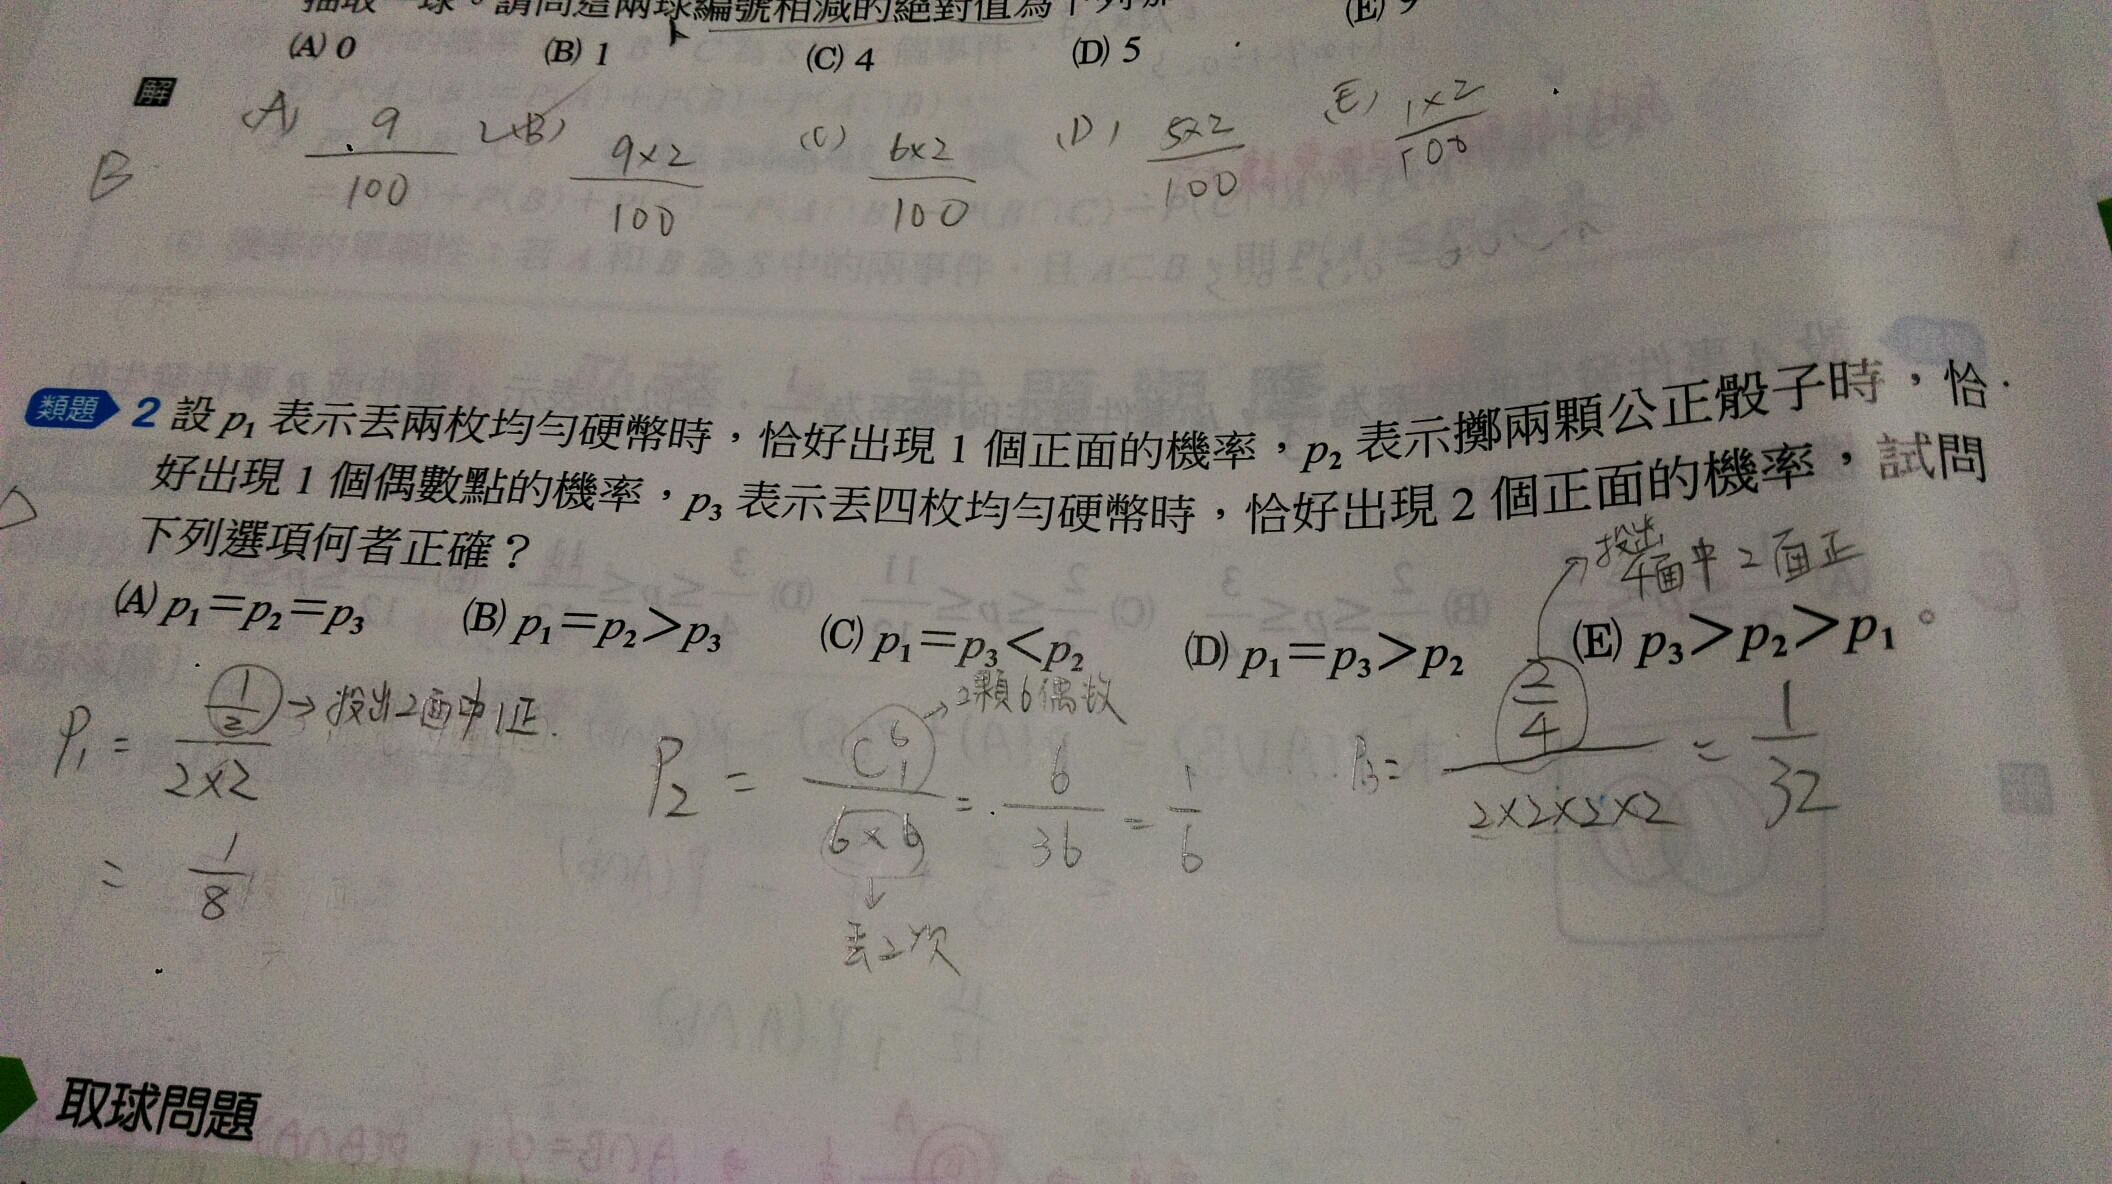 抽取一球。請問這兩球編號相減的絕對值為下列那
(E) 9
(A) 0 (B) 1 (C) 4 (D) 5
解
(A) 9/100 (B) 9×2/100 (C) 6×2/100 (D) 5×2/100 (E) 1×2/100
B
類題 2 設 p₁ 表示丟兩枚均勻硬幣時，恰好出現 1 個正面的機率，p₂ 表示擲兩顆公正骰子時，恰
好出現 1 個偶數點的機率，p₃ 表示丟四枚均勻硬幣時，恰好出現 2 個正面的機率，試問
下列選項何者正確？
D
→投出
4面中2面正
(A) p₁＝p₂＝p₃ (B) p₁＝p₂＞p₃ (C) p₁＝p₃＜p₂ (D) p₁＝p₃＞p₂ (E) p₃＞p₂＞p₁。
P₁ = (1/2)/(2×2) →投出2面中1正.
= 1/8
→2顆6偶數
P₂ = C⁶₁/(6×6) = 6/36 = 1/6
↓
丟2次
P₃ = (2/4)/(2×2×2×2) = 1/32
取球問題